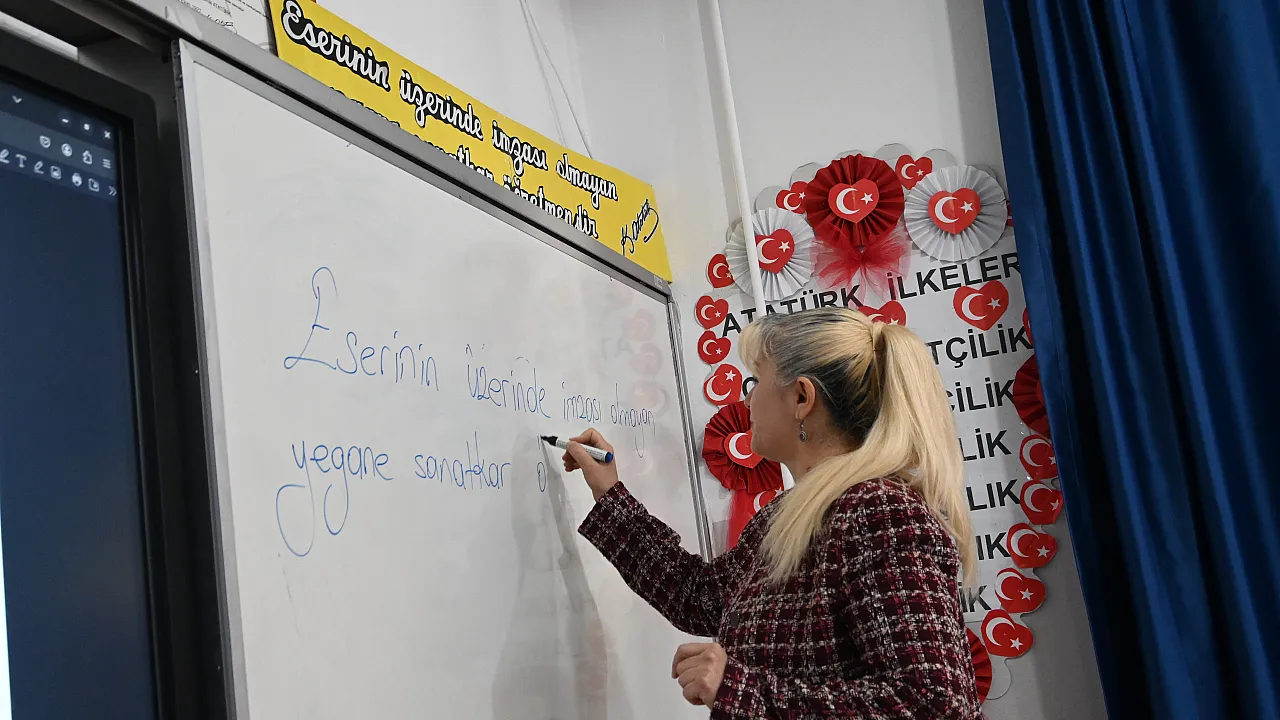 Eserinin üzerinde imzası olmayan
öğretmendir
K. Atatürk
Eserinin üzerinde imzası olmayan
yegane sanatkar ö
ATATÜRK İLKELER
TÇİLİK
ÇİLİK
LİK
LIK
İK
LİK